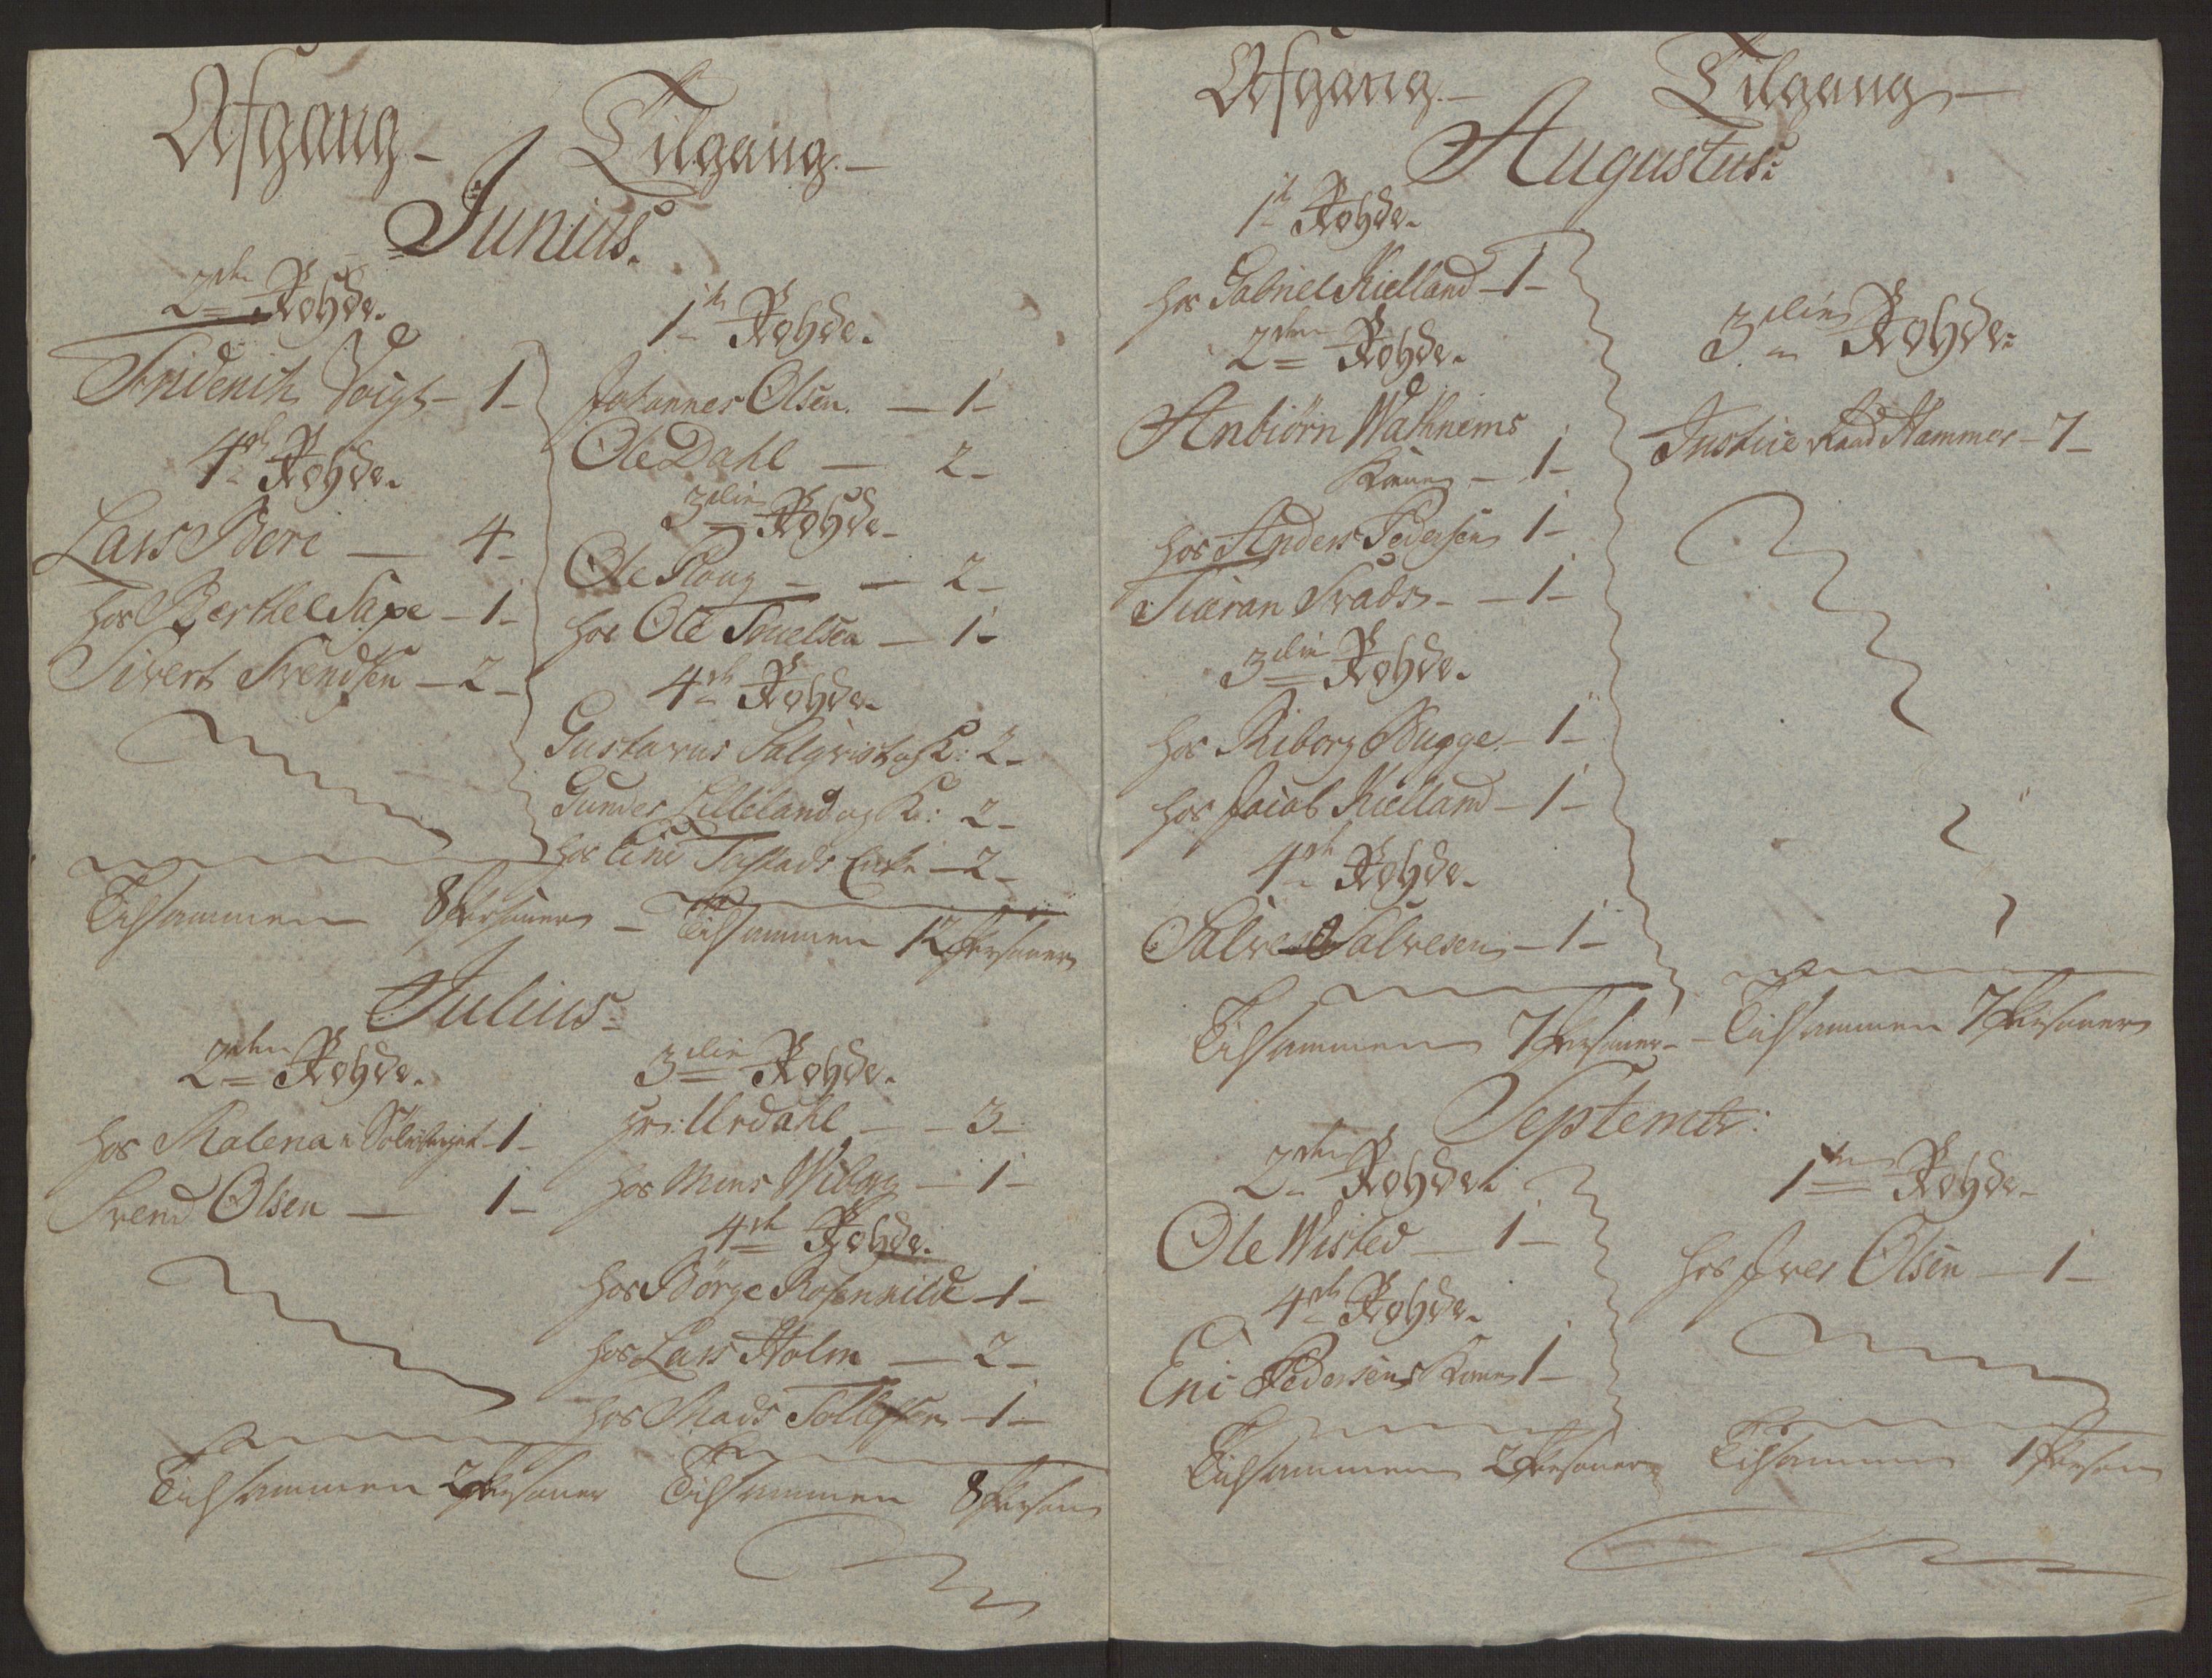 Afgang — Tilgang —
Junius.
2den Rohde.
Friderich Voigt — 1 —
4de Rohde.
Lars Bore — 4 —
hos Berthel Saxe — 1 —
Sivert Svendsen — 2 —
Tilsammen 8 Personer —
1te Rohde.
Johannes Olsen. — 1 —
Ole Dahl — 2 —
3die Rohde.
Ole Ploug — — 2 —
hos Ole Touelsen — 1 —
4de Rohde.
Gustavus Salqvist og K: 2 —
Gunder Lilleland og K: 2 —
hos Tastads Enke — 2 —
Tilsammen 12 Personer
Julius.
2den Rohde.
hos Malena i — 1 —
Svend Olsen — 1 —
Tilsammen 2 Personer
3die Rohde.
Hr: Urdahl — — 3 —
hos Mons Wiborg — 1 —
4de Rohde.
hos Børge Rosenkilde — 1 —
hos Lars Holm — 2 —
hos Mads Tollefsen — 1 —
Tilsammen 8 Person
Afgang — Tilgang —
Augustus:
1te Rohde.
hos Gabriel Kielland — 1 —
2den Rohde.
Anbiørn Wathnems
Kone — 1 —
hos Anders Pedersen 1 —
— — 1 —
3die Rohde.
hos Kiborg Bugge — 1 —
hos Jacob Kielland — 1 —
4de Rohde.
Salve Salvesen — 1 —
Tilsammen 7 Personer —
3die Rohde:
Justice Raad Hammer — 7 —
Tilsammen 7 Personer
Septembr:
2den Rohde.
Ole Wisted — 1 —
4de Rohde.
Eric Pedersens Kone 1 —
Tilsammen 2 Personer
1te Rohde.
hos Iver Olsen — 1 —
Tilsammen 1 Person